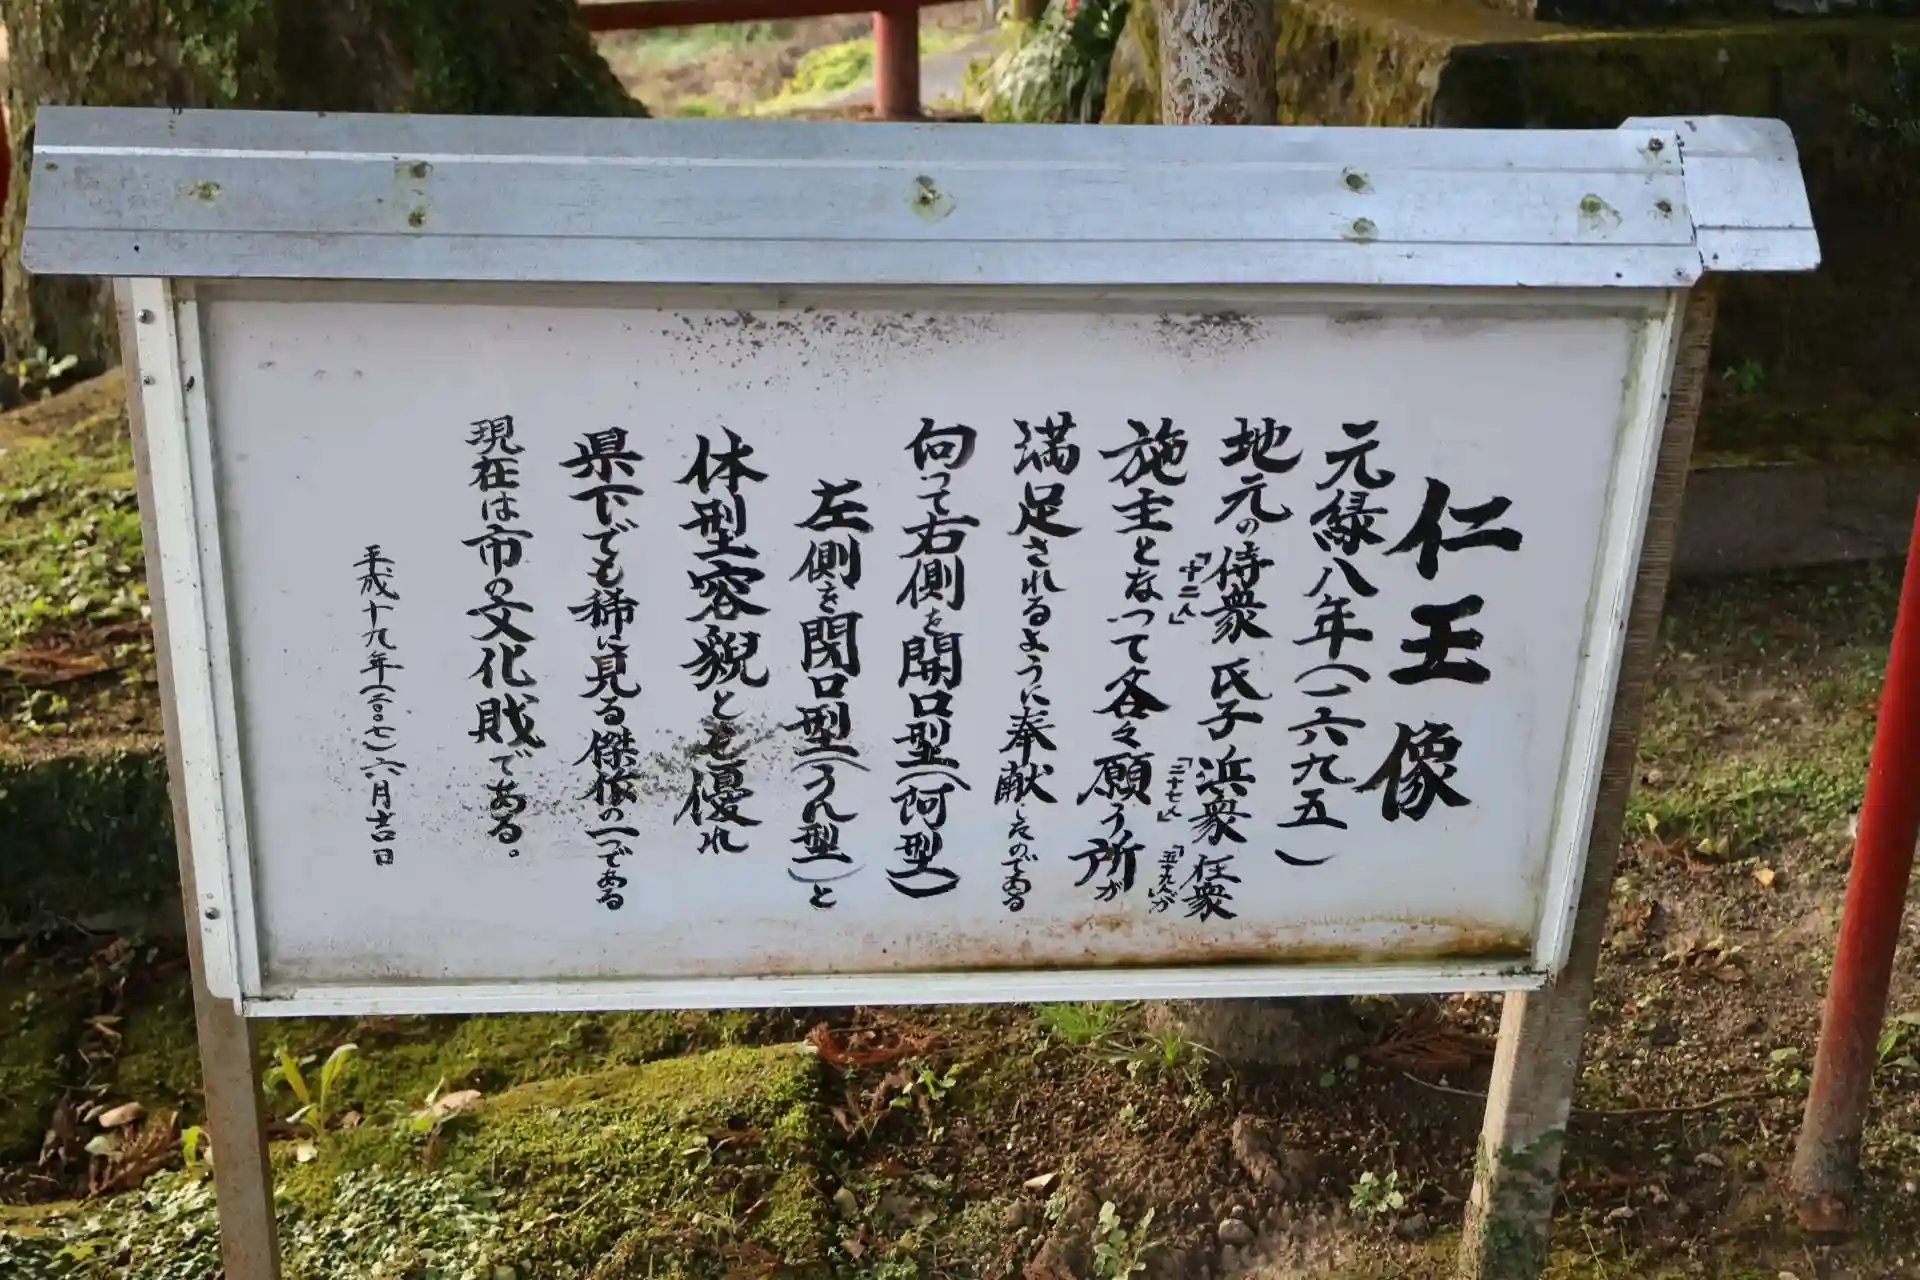 仁王像
元緑八年(一六九五)
地元の侍衆「十二人」氏子浜衆「二十七人」在衆「五十九人」が
施主となって各々願う所が
満足されるように奉献したのである
向って右側を開口型(阿型)
左側を閉口型(うん型)と
体型容貌とも優れ
県下でも稀に見る傑作の一つである
現在は市の文化財である。
平成十九年(二〇〇七)六月吉日